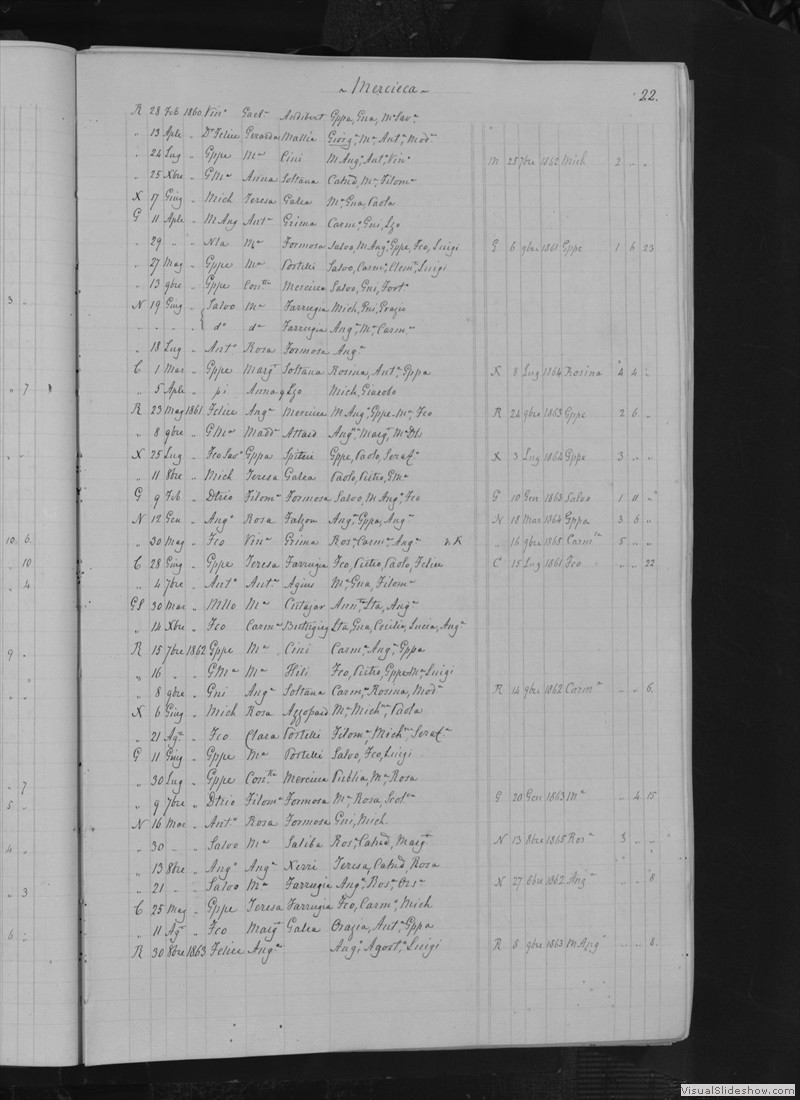 ~ Mercieca ~
22.
R 28 Feb 1860 Vinº Gaetª Audibert Gppa, Gna, Mª Savª
" 13 Aple " Dr Felice, Gerarda Mallia Giorgª, Mª, Antª, Modª
" 24 Lug " Gppe Mª Cini M Angª, Antª, Vinª M 25 7bre 1862 Mich 2 " "
" 25 Xbre " G Mª Anna Soltana Catnd, Mª, Filomª
X 17 Giug " Mich Teresa Galea Mª, Gna, Paola
G 11 Aple " M Ang Antª Grima Carmª, Gni, Lzo
" 29 " " Nla Mª Formosa Salvo, M Angª, Gppe, Fco, Luigi G 6 9bre 1861 Gppe 1 6 23
" 27 Mag " Gppe Mª Portelli Salvo, Carmª, Clemª, Luigi
" 13 9bre " Gppe Conttª Mercieca Salvo, Gni, Fortª
N 19 Giug " Salvo Mª Farrugia Mich, Gni, Grazio
" " " " dº dª Farrugia Angª, Mª, Carmª
" 18 Lug " Antº Rosa Formosa Angª
C 1 Mar " Gppe Margª Soltana Rosina, Antª, Gppa X 8 Lug 1864 Rosina 4 4 "
" 5 Aple " pi Anna q Lzo Mich, Giacobo
R 23 Mag 1861 Felice Angª Mercieca M Angª, Gppe Mª, Fco R 24 9bre 1863 Gppe 2 6 "
" 8 9bre " G Mª Maddª Attard Angª, Margª, Mª Dls
X 25 Lug " Fco Savº Gppa Spiteri Gppe, Paolo, Serafª X 3 Lug 1864 Gppe 3 " "
" 11 8bre " Mich Teresa Galea Paolo, Pietro, G Mª
G 9 Feb " Dtrio Filomª Formosa Salvo, M Angª, Fco G 10 Gen 1863 Salvo 1 11 "
N 12 Gen " Angº Rosa Falzon Angª, Gppa, Angª N 18 Mar 1864 Gppa 3 6 "
" 30 Mag " Fco Vinª Grima Rosª, Carmª, Angª & X " 16 9bre 1865 Carmla 5 " "
C 28 Giug " Gppe Teresa Farrugia Fco, Pietro, Paolo, Felice C 15 Lug 1861 Fco " " 22
" 4 7bre " Antº Antª Agius Mª, Gna, Filomª
GS 30 Mar " Mllo Mª Cutajar Annª, Lta, Angª
" 14 Xbre " Fco Carmª Buttigieg Lta, Gna, Cecilia, Lucia, Angª
R 15 7bre 1862 Gppe Mª Cini Carmª, Angª, Gppa
" 16 " " G Mª Mª Hili Fco, Pietro, Gppe Mª, Luigi
" 8 9bre " Gni Angª Soltana Carmª, Rosina, Modª R 14 9bre 1862 Carmª " " 6.
X 6 Giug " Mich Rosa Azzopard Mª, Michª, Paola
" 21 Agº " Fco Clara Portelli Filomª, Michª, Serafª
G 11 Giug " Gppe Mª Portelli Salvo, Fco, Luigi
" 30 Lug " Gppe Conttª Mercieca Publia, Mª, Rosa
" 9 7bre " Dtrio Filomª Formosa Mª, Rosa, Scolª G 20 Gen 1863 Mª " 4 15
N 16 Mar " Antº Rosa Formosa Gni, Mich
" 30 " " Salvo Mª Saliba Rosª, Catnd, Margª N 13 8bre 1865 Rosª 3 " "
" 13 8bre " Angº Angª Xerri Teresa, Catnd, Rosa
" 21 " " Salvo Mª Farrugia Angª, Rosª, Orsª N 27 8bre 1862 Angª " " 8
C 25 Mag " Gppe Teresa Farrugia Fco, Carmª, Mich
" 11 Agº " Fco Margª Galea Orazia, Antª, Gppa
R 30 8bre 1863 Felice Angª Angª, Agostª, Luigi R 8 9bre 1863 M Angª " " 8.
VisualSlideshow.com